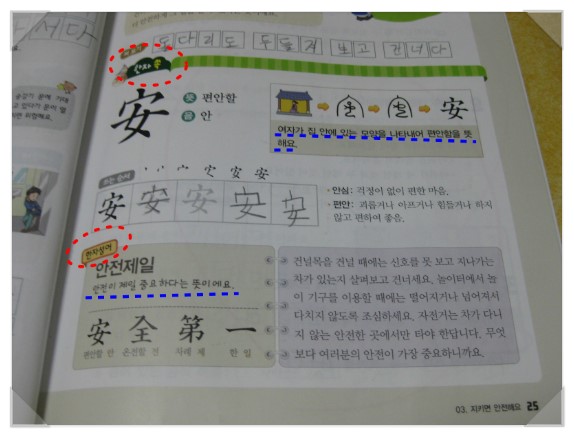 서 다
돌 다 리 도 두 들 겨 보 고 건 너 다
한자 쏙
安
뜻 편안할
음 안
安
여자가 집 안에 있는 모양을 나타내어 편안함을 뜻
해요.
쓰는 순서
安 安
安 安 安 安 安
· 안심: 걱정이 없이 편한 마음.
· 편안: 괴롭거나 아프거나 힘들거나 하지
않고 편하여 좋음.
한자성어
안전제일
안전이 제일 중요하다는 뜻이에요.
安 全 第 一
편안할 안 온전할 전 차례 제 한 일
건널목을 건널 때에는 신호를 못 보고 지나가는
차가 있는지 살펴보고 건너세요. 놀이터에서 놀
이 기구를 이용할 때에는 떨어지거나 넘어져서
다치지 않도록 조심하세요. 자전거는 차가 다니
지 않는 안전한 곳에서만 타야 한답니다. 무엇
보다 여러분의 안전이 가장 중요하니까요.
03. 지키면 안전해요 25